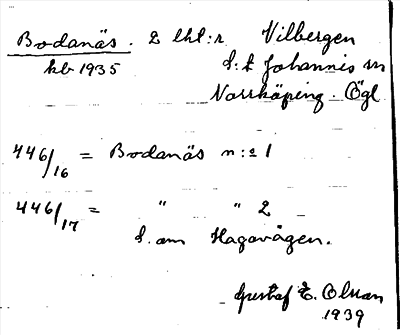 Bodanäs. 2 lht:r Vilbergen
kb 1935
S:t Johannis sn
Norrköping. Ögl
446/16 = Bodanäs n:o 1
446/17 = " " 2
S. om Hagavägen.
Gustaf E. Olsson
1939